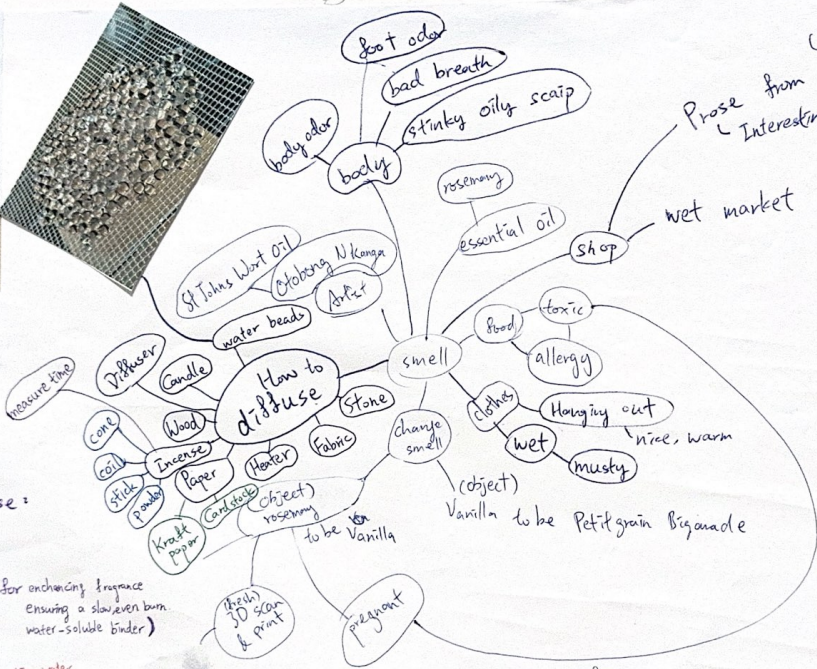 foot odor
bad breath
stinky oily scalp
body odor
body
Prose from
Interestin
wet market
shop
rosemary
essential oil
St Johns Wort Oil
Otobong Nkanga
Artist
water beads
smell
food
toxic
allergy
clothes
Hanging out
nice, warm
wet
musty
How to
diffuse
Diffuser
Candle
Wood
Stone
Fabric
Heater
Paper
Incense
measure time
cone
coil
stick
powder
Card stock
Kraft
paper
change
smell
(object)
rosemary
to be Vanilla
(object)
Vanilla to be Petitgrain Bigarade
(fresh)
3D scan
& print
pregnant
se:
for enchancing fragrance
ensuring a slow, even burn
water-soluble binder)